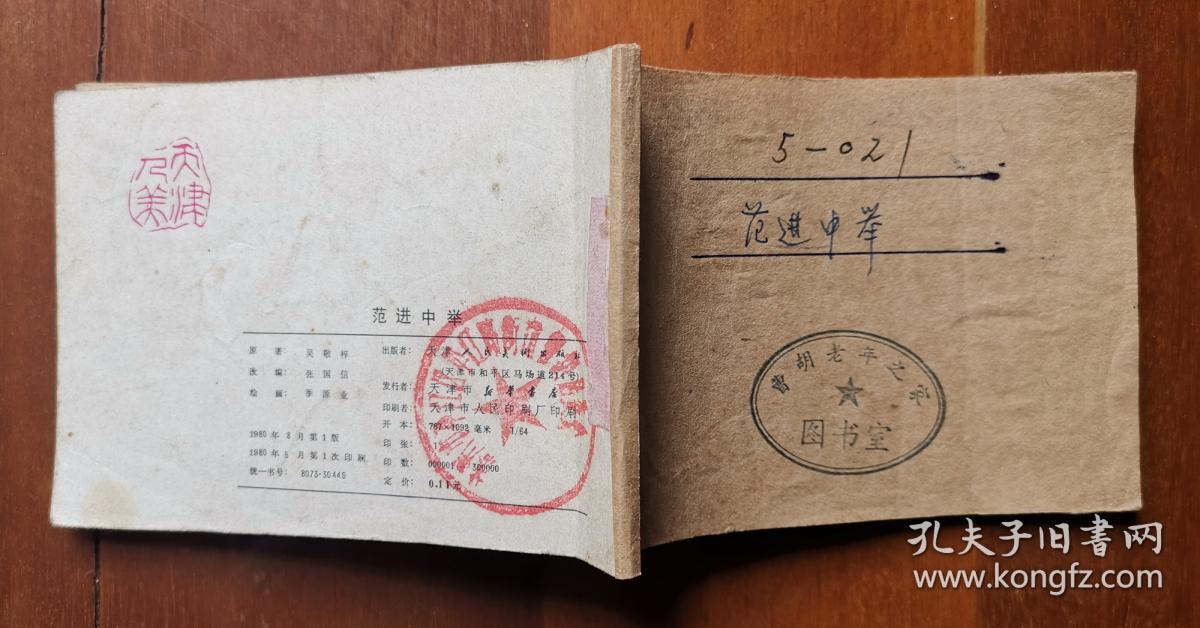 天津
人美
范进中举
原 著: 吴敬梓
改 编: 张国信
绘 画: 季源业
出版者: 天津人民美术出版社
(天津市和平区马场道214号)
发行者: 天津市新华书店
印刷者: 天津市人民印刷厂印刷
开 本: 787×1092毫米 1/64
印 张:
印 数: 000001 300000
定 价: 0.11元
1980年8月第1版
1980年8月第1次印刷
统一书号: 8073·30449
5-021
范进中举
胡老年之家
图书室
孔夫子旧书网
www.kongfz.com